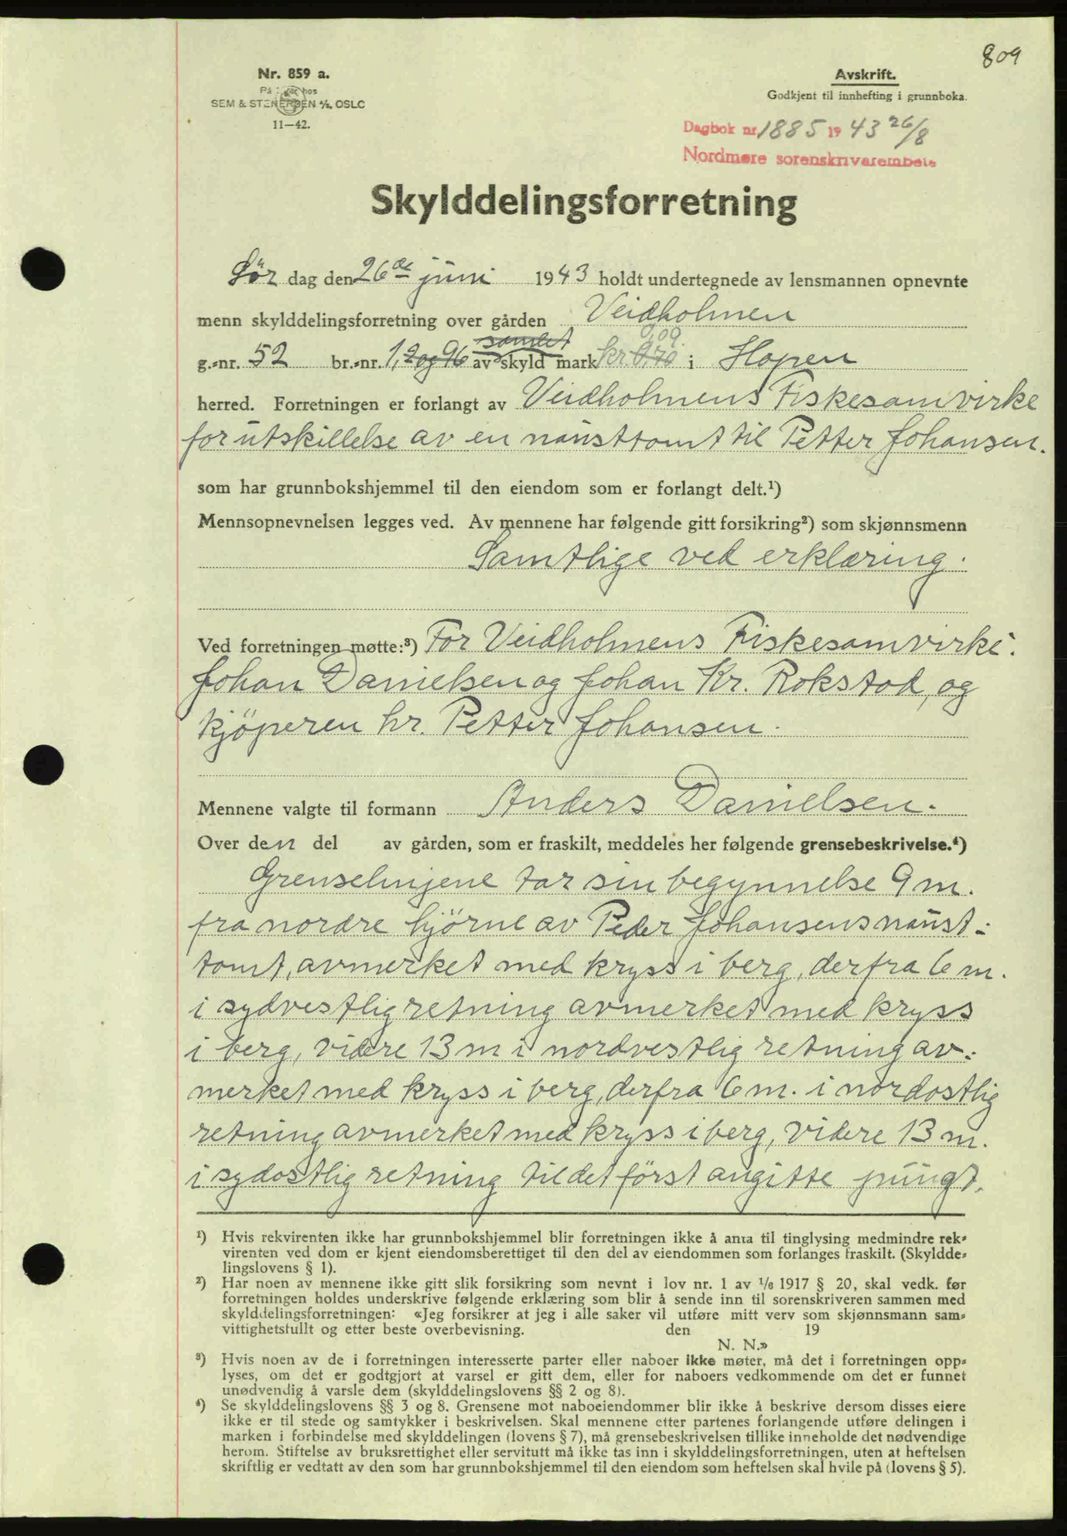 809
Nr. 859 a.
På lager hos
SEM & STENERSEN A/S, OSLO
11—42.
Avskrift.
Godkjent til innhefting i grunnboka.
Dagbok nr. 1885 1943 26/8
Nordmøre sorenskriverembete
Skylddelingsforretning
Lör dag den 26de juni 1943 holdt undertegnede av lensmannen opnevnte
menn skylddelingsforretning over gården Veidholmen
samlet 0,09.
g.-nr. 52 br.-nr. 1, 2 og 96 av skyld mark kr. 0,70 i Hopen
herred. Forretningen er forlangt av Veidholmens Fiskesamvirke
for utskillelse av en nausttomt til Petter Johansen.
som har grunnbokshjemmel til den eiendom som er forlangt delt.¹)
Mennsopnevnelsen legges ved. Av mennene har følgende gitt forsikring²) som skjønnsmenn
Samtlige ved erklæring.
Ved forretningen møtte:³) For Veidholmens Fiskesamvirke:
Johan Danielsen og Johan Kr. Rokstad, og
kjöperen hr. Petter Johansen.
Mennene valgte til formann Anders Danielsen.
Over den del av gården, som er fraskilt, meddeles her følgende grensebeskrivelse.⁴)
Grenselinjene tar sin begynnelse 9 m.
fra nordre hjörne av Peder Johansens naust-
tomt, avmerket med kryss i berg, derfra 6 m.
i sydvestlig retning avmerket med kryss
i berg, videre 13 m i nordvestlig retning av-
merket med kryss i berg, derfra 6 m. i nordostlig
retning avmerket med kryss i berg, videre 13 m.
i sydostlig retning til det först angitte pungt.
¹) Hvis rekvirenten ikke har grunnbokshjemmel blir forretningen ikke å anta til tinglysing medmindre rek-
virenten ved dom er kjent eiendomsberettiget til den del av eiendommen som forlanges fraskilt. (Skyldde-
lingslovens § 1).
²) Har noen av mennene ikke gitt slik forsikring som nevnt i lov nr. 1 av 1/6 1917 § 20, skal vedk. før
forretningen holdes underskrive følgende erklæring som blir å sende inn til sorenskriveren sammen med
skylddelingsforretningen: «Jeg forsikrer at jeg i alle saker vil utføre mitt verv som skjønnsmann sam-
vittighetsfullt og etter beste overbevisning. den 19
N. N.»
³) Hvis noen av de i forretningen interesserte parter eller naboer ikke møter, må det i forretningen opp-
lyses, om det er godtgjort at varsel er gitt dem, eller for naboers vedkommende om det er funnet
unødvendig å varsle dem (skylddelingslovens §§ 2 og 8).
⁴) Se skylddelingslovens §§ 3 og 8. Grensene mot naboeiendommer blir ikke å beskrive dersom disses eiere
ikke er til stede og samtykker i beskrivelsen. Skal mennene etter partenes forlangende utføre delingen i
marken i forbindelse med skylddelingen (lovens § 7), må grensebeskrivelsen tillike inneholde det nødvendige
herom. Stiftelse av bruksrettighet eller servitutt må ikke tas inn i skylddelingsforretningen, uten at heftelsen
skriftlig er vedtatt av den som har grunnbokshjemmel til den eiendom som heftelsen skal hvile på (lovens § 5).